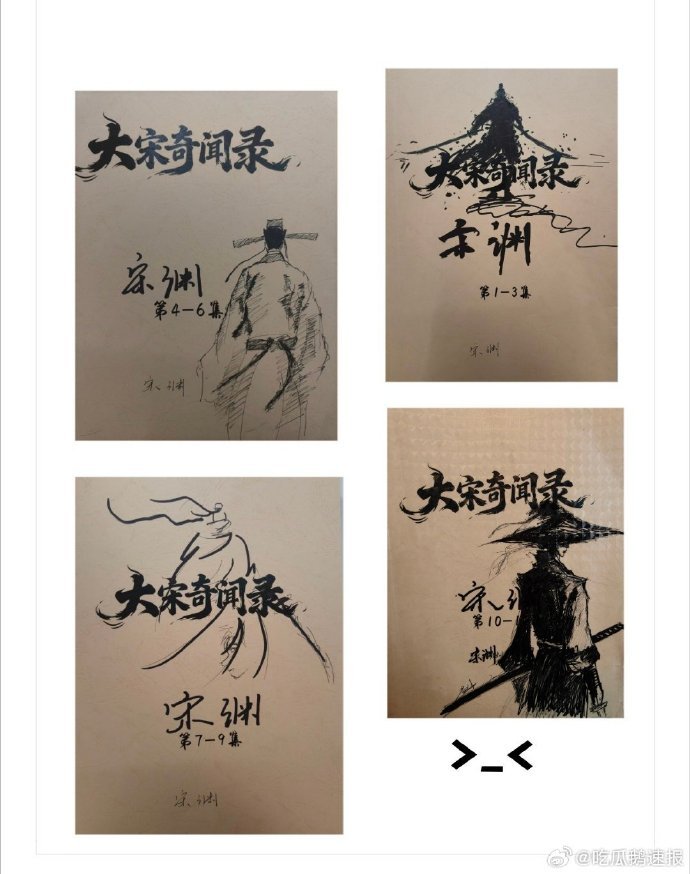 大宋奇闻录
宋渊
第4-6集
宋渊
大宋奇闻录
宋渊
第1-3集
宋渊
大宋奇闻录
宋渊
第7-9集
宋渊
大宋奇闻录
宋渊
第10-
宋渊
>_<
@吃瓜鹅速报